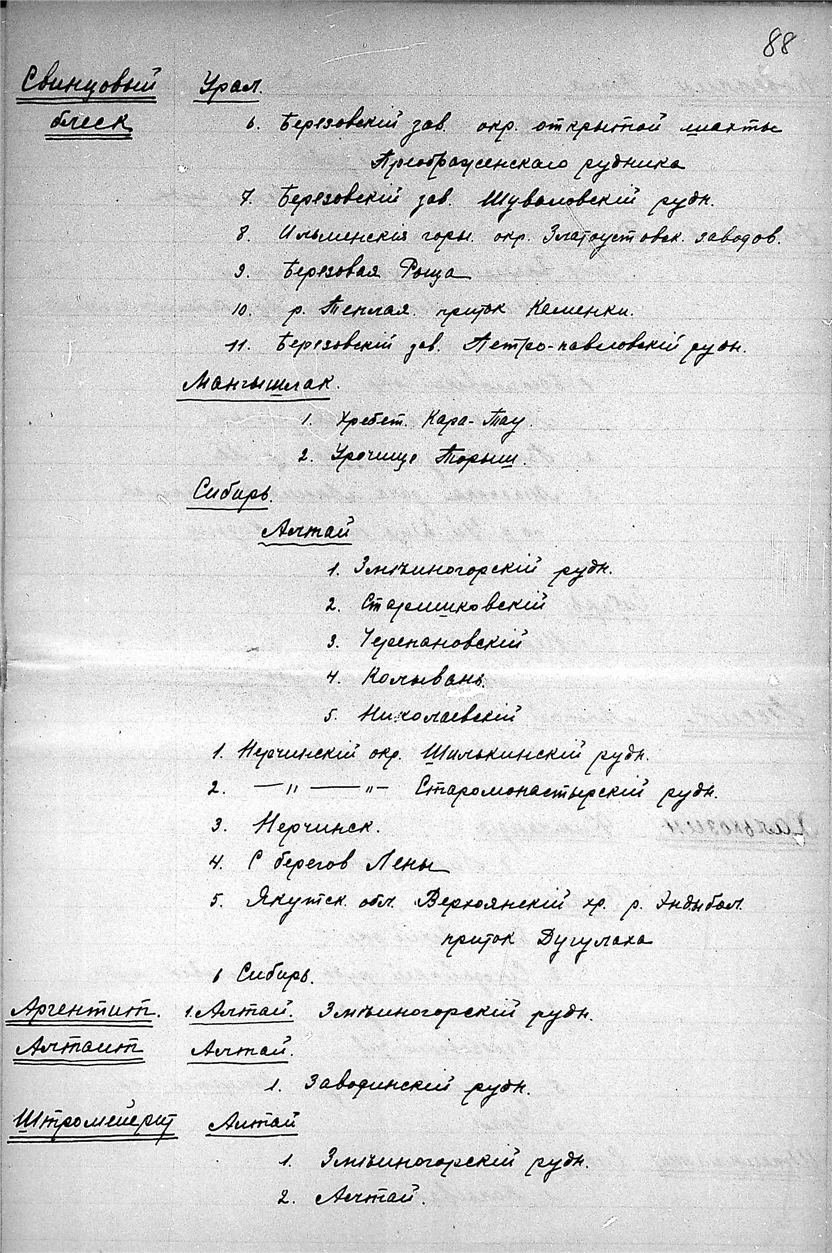 88
Свинцовый Урал.
блеск 6. Березовскій зав. окр. открытой шахты
Преображенскаго рудника
7. Березовскій зав. Шуваловскій рудн.
8. Ильменскія горы. окр. Златоустовск. заводов.
9. Березовая Роща
10. р. Теплая. приток Каменки.
11. Березовскій зав. Петро-павловскій рудн.
Мангышлак.
1. Хребет. Кара-Тау.
2. Урочище Торыш.
Сибирь.
Алтай
1. Змѣиногорскій рудн.
2. Старишковскій
3. Черепановскій
4. Колывань
5. Николаевскій
1. Нерчинскій окр. Шилькинскій рудн.
2. —„——„— Старомонастырскій рудн.
3. Нерчинск.
4. С берегов Лены
5. Якутск. обл. Верхоянскій хр. р. Эндыбал.
приток Дугулаха
6 Сибирь.
Аргентит. 1. Алтай. Змѣиногорскій рудн.
Алтаит Алтай.
1. Заводинскій рудн.
Штромейерит Алтай
1. Змѣиногорскій рудн.
2. Алтай.